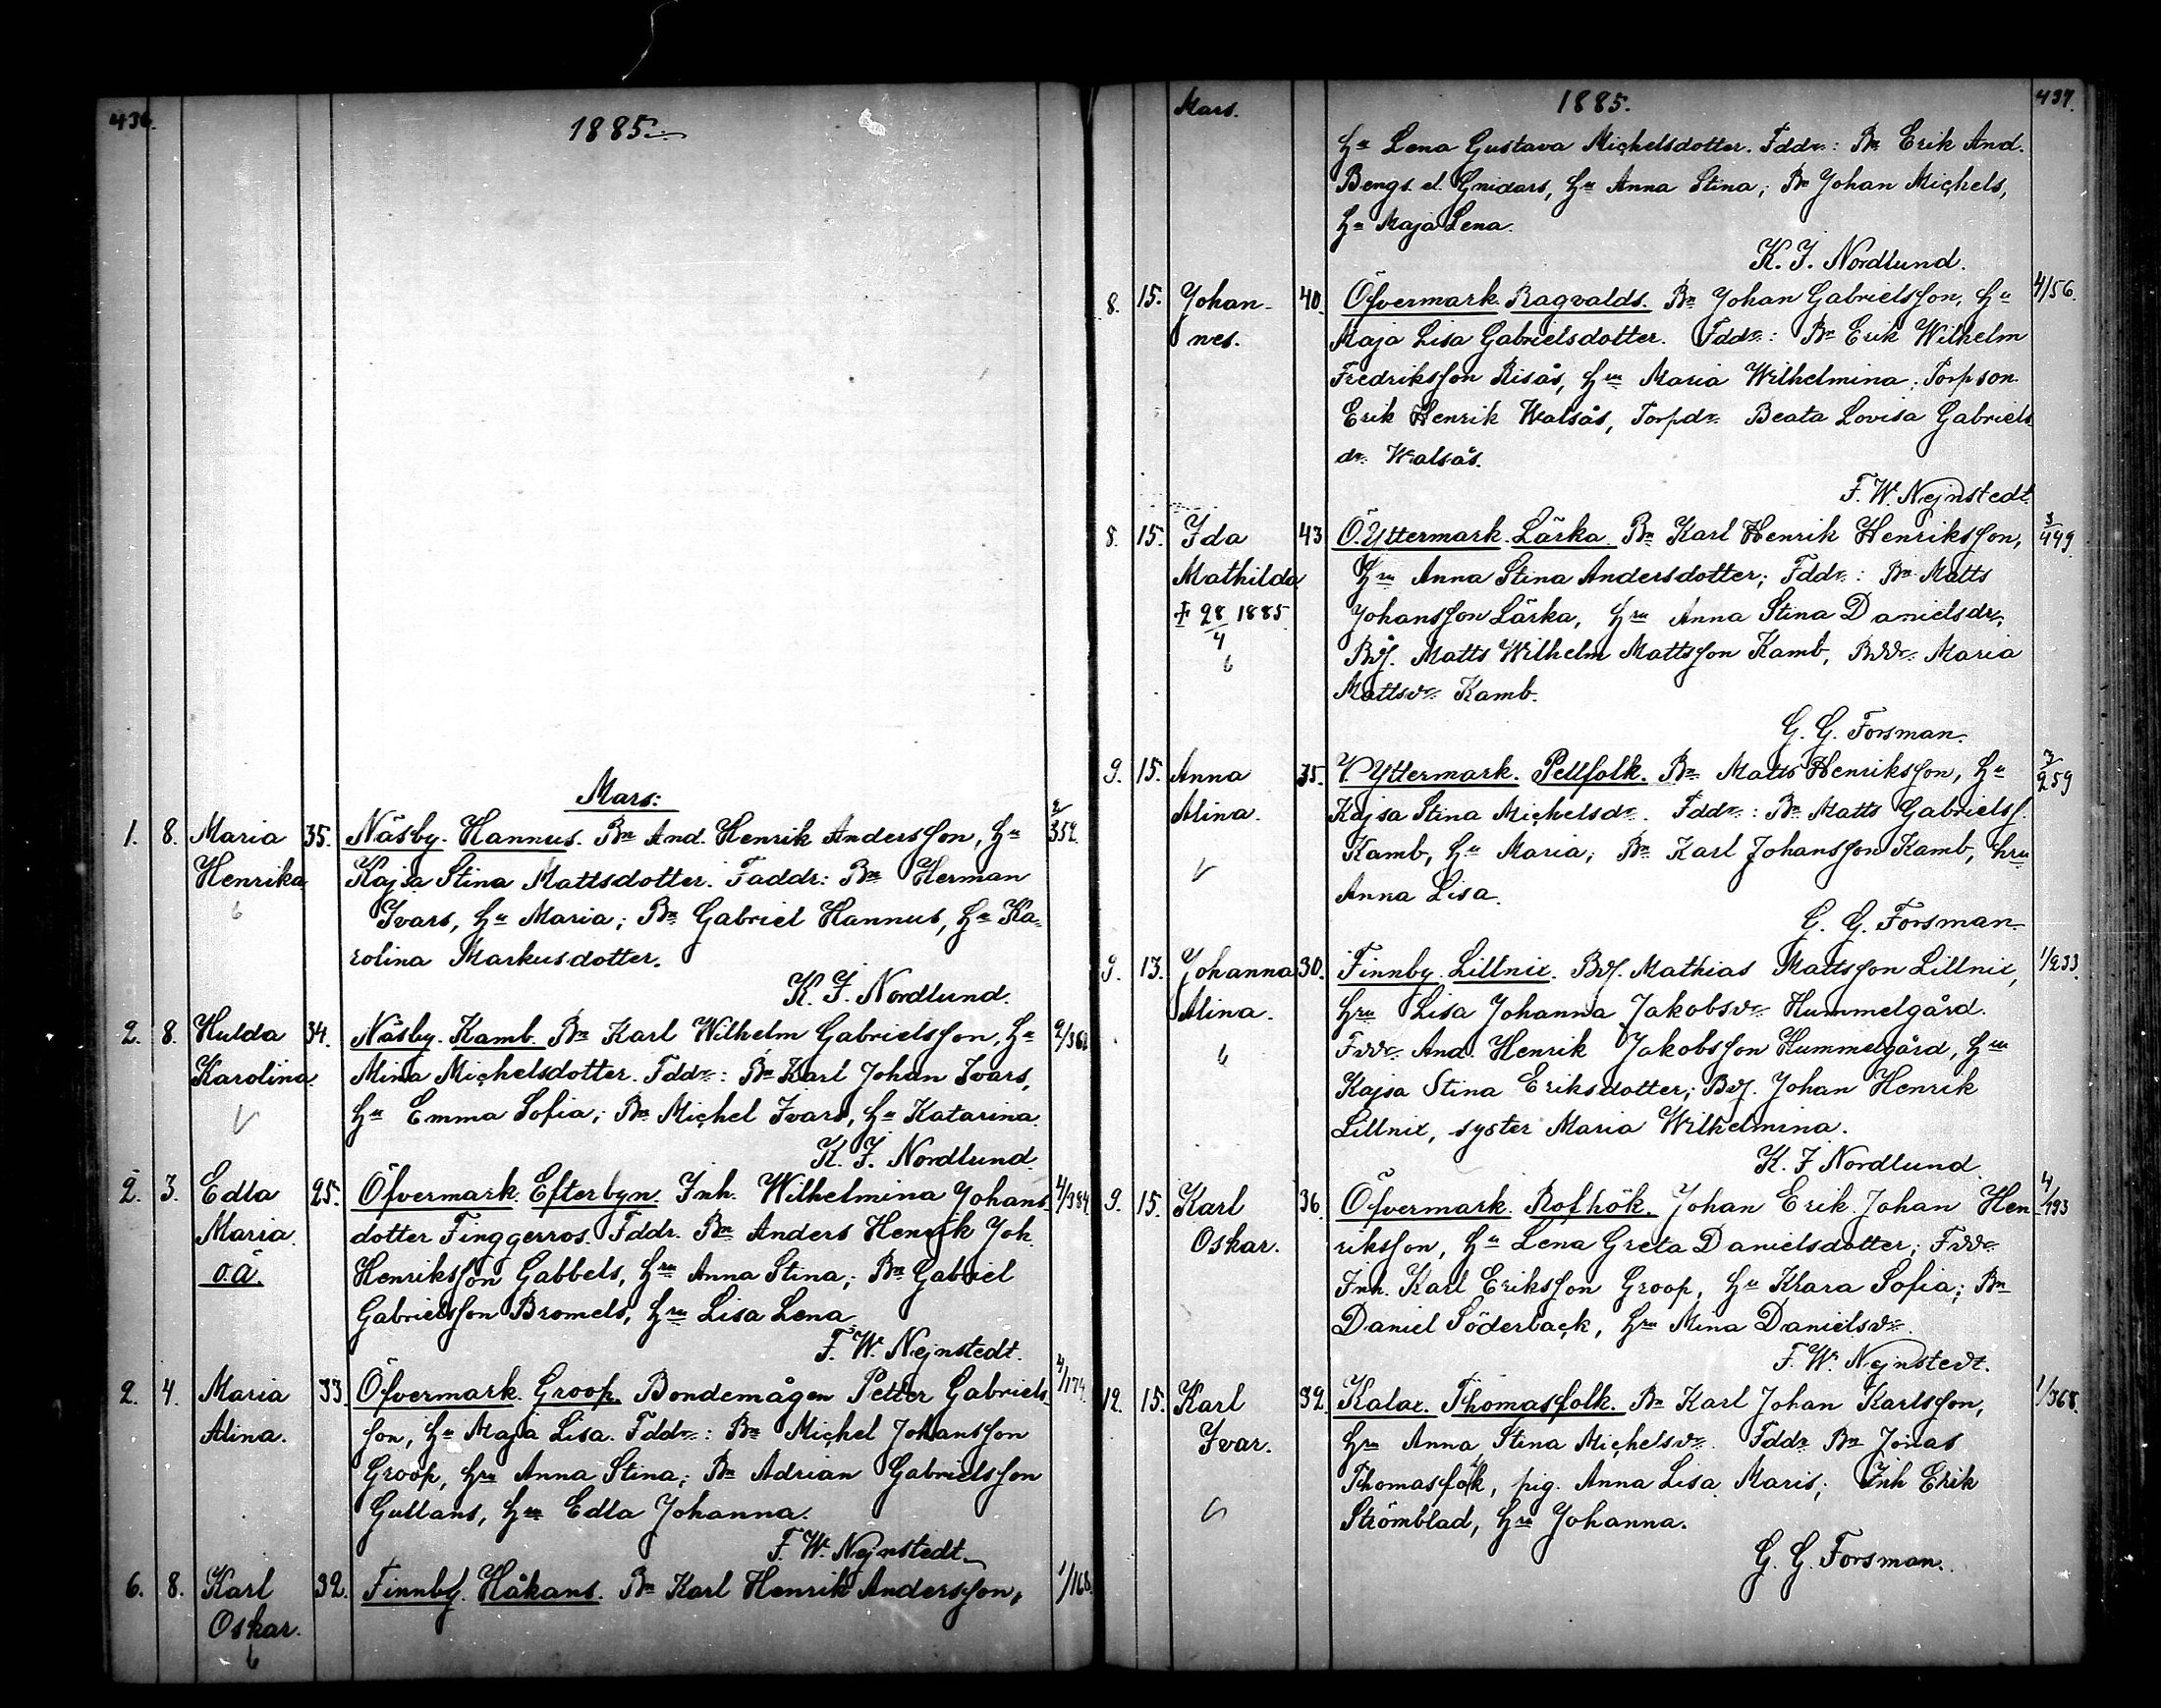 436.
1885.
Mars:
1. 8. Maria 35. Näsby. Hannus. Bn And. Henrik Andersson, Hu 2/352.
Henrika Kajsa Stina Mattsdotter. Faddr: Bn Herman
Ivars, Hu Maria; Bn Gabriel Hannus, Hu Ka-
rolina Markusdotter.
K. J. Nordlund.
2. 8. Hulda 34. Näsby. Kamb. Bn Karl Wilhelm Gabrielsson, Hu
Karolina. Mina Michelsdotter. Fddr: Bn Karl Johan Ivars,
Hu Emma Sofia; Bn Michel Ivars, Hu Katarina.
K. J. Nordlund.
2. 3. Edla 25. Öfvermark. Efterbyn. Inh. Wilhelmina Johans- 4/384.
Maria. dotter Finggerros. Fddr. Bn Anders Henrik Joh.
o.ä. Henriksson Gabbels, Hru Anna Stina; Bn Gabriel
Gabrielsson Bromels, Hru Lisa Lena
F. W. Nejnstedt.
2. 4. Maria 33. Öfvermark. Groop. Bondemågen Petter Gabriels- 4/174.
Alina. son, Hu Maja Lisa. Fddr: Bn Michel Johansson
Groop, Hru Anna Stina; Bn Adrian Gabrielsson
Gullans, Hru Edla Johanna.
F. W. Nejnstedt.
6. 8. Karl 32. Finnby. Håkans. Bn Karl Henrik Andersson, 1/168.
Oskar.
Mars. 1885. 437.
Hu Lena Gustava Michelsdotter. Fddr: Bn Erik And.
Bengs el. Gnidars, Hu Anna Stina; Bn Johan Michels,
Hu Maja Lena.
K. J. Nordlund.
8. 15. Johan- 40. Öfvermark. Ragvalds. Bn Johan Gabrielsson, Hu 4/56.
nes. Maja Lisa Gabrielsdotter. Fddr: Bn Erik Wilhelm
Fredriksson Risås, Hru Maria Wilhelmina; Torpson
Erik Henrik Walsås, Torpdr. Beata Lovisa Gabriels
dr. Walsås.
F. W. Nejnstedt.
8. 15. Ida 43 Ö. Yttermark. Lärka. Bn Karl Henrik Henriksson, 3/449.
Mathilda Hru Anna Stina Andersdotter; Fddr: Bn Matts
† 28/4 1885 Johansson Lärka, Hru Anna Stina Danielsdr,
Bds. Matts Wilhelm Mattsson Kamb, Bddr. Maria
Mattsdr. Kamb.
G. G. Forsman.
9. 15. Anna 35. V. Yttermark. Pellfolk. Bn Matts Henriksson, Hu 3/259
Alina. Kajsa Stina Michelsdr. Fddr: Bn Matts Gabrielss.
Kamb, Hu Maria; Bn Karl Johansson Kamb, hru
Anna Lisa.
G. G. Forsman.
9. 13. Johanna 30. Finnby. Lillnix. Bds. Mathias Mattsson Lillnix, 1/233.
Alina. Hru Lisa Johanna Jakobsdr. Hummelgård.
Fddr. And. Henrik Jakobsson Hummelgård, Hru
Kajsa Stina Eriksdotter; Bds. Johan Henrik
Lillnix, syster Maria Wilhelmina.
K. J Nordlund
9. 15. Karl 36. Öfvermark. Rofhök. Johan Erik Johan Hen- 4/193
Oskar. riksson, Hu Lena Greta Danielsdotter; Fddr
Inh. Karl Eriksson Groop, Hu Klara Sofia; Bn
Daniel Söderback, Hru Mina Danielsdr.
F. W. Nejnstedt.
12. 15. Karl 32. Kalax. Thomasfolk. Bn Karl Johan Karlsson, 1/368.
Ivar. Hru Anna Stina Michelsdr. Fddr Bn Jonas
Thomasfolk, pig. Anna Lisa Maris; Inh Erik
Strömblad, Hru Johanna.
G. G. Forsman.